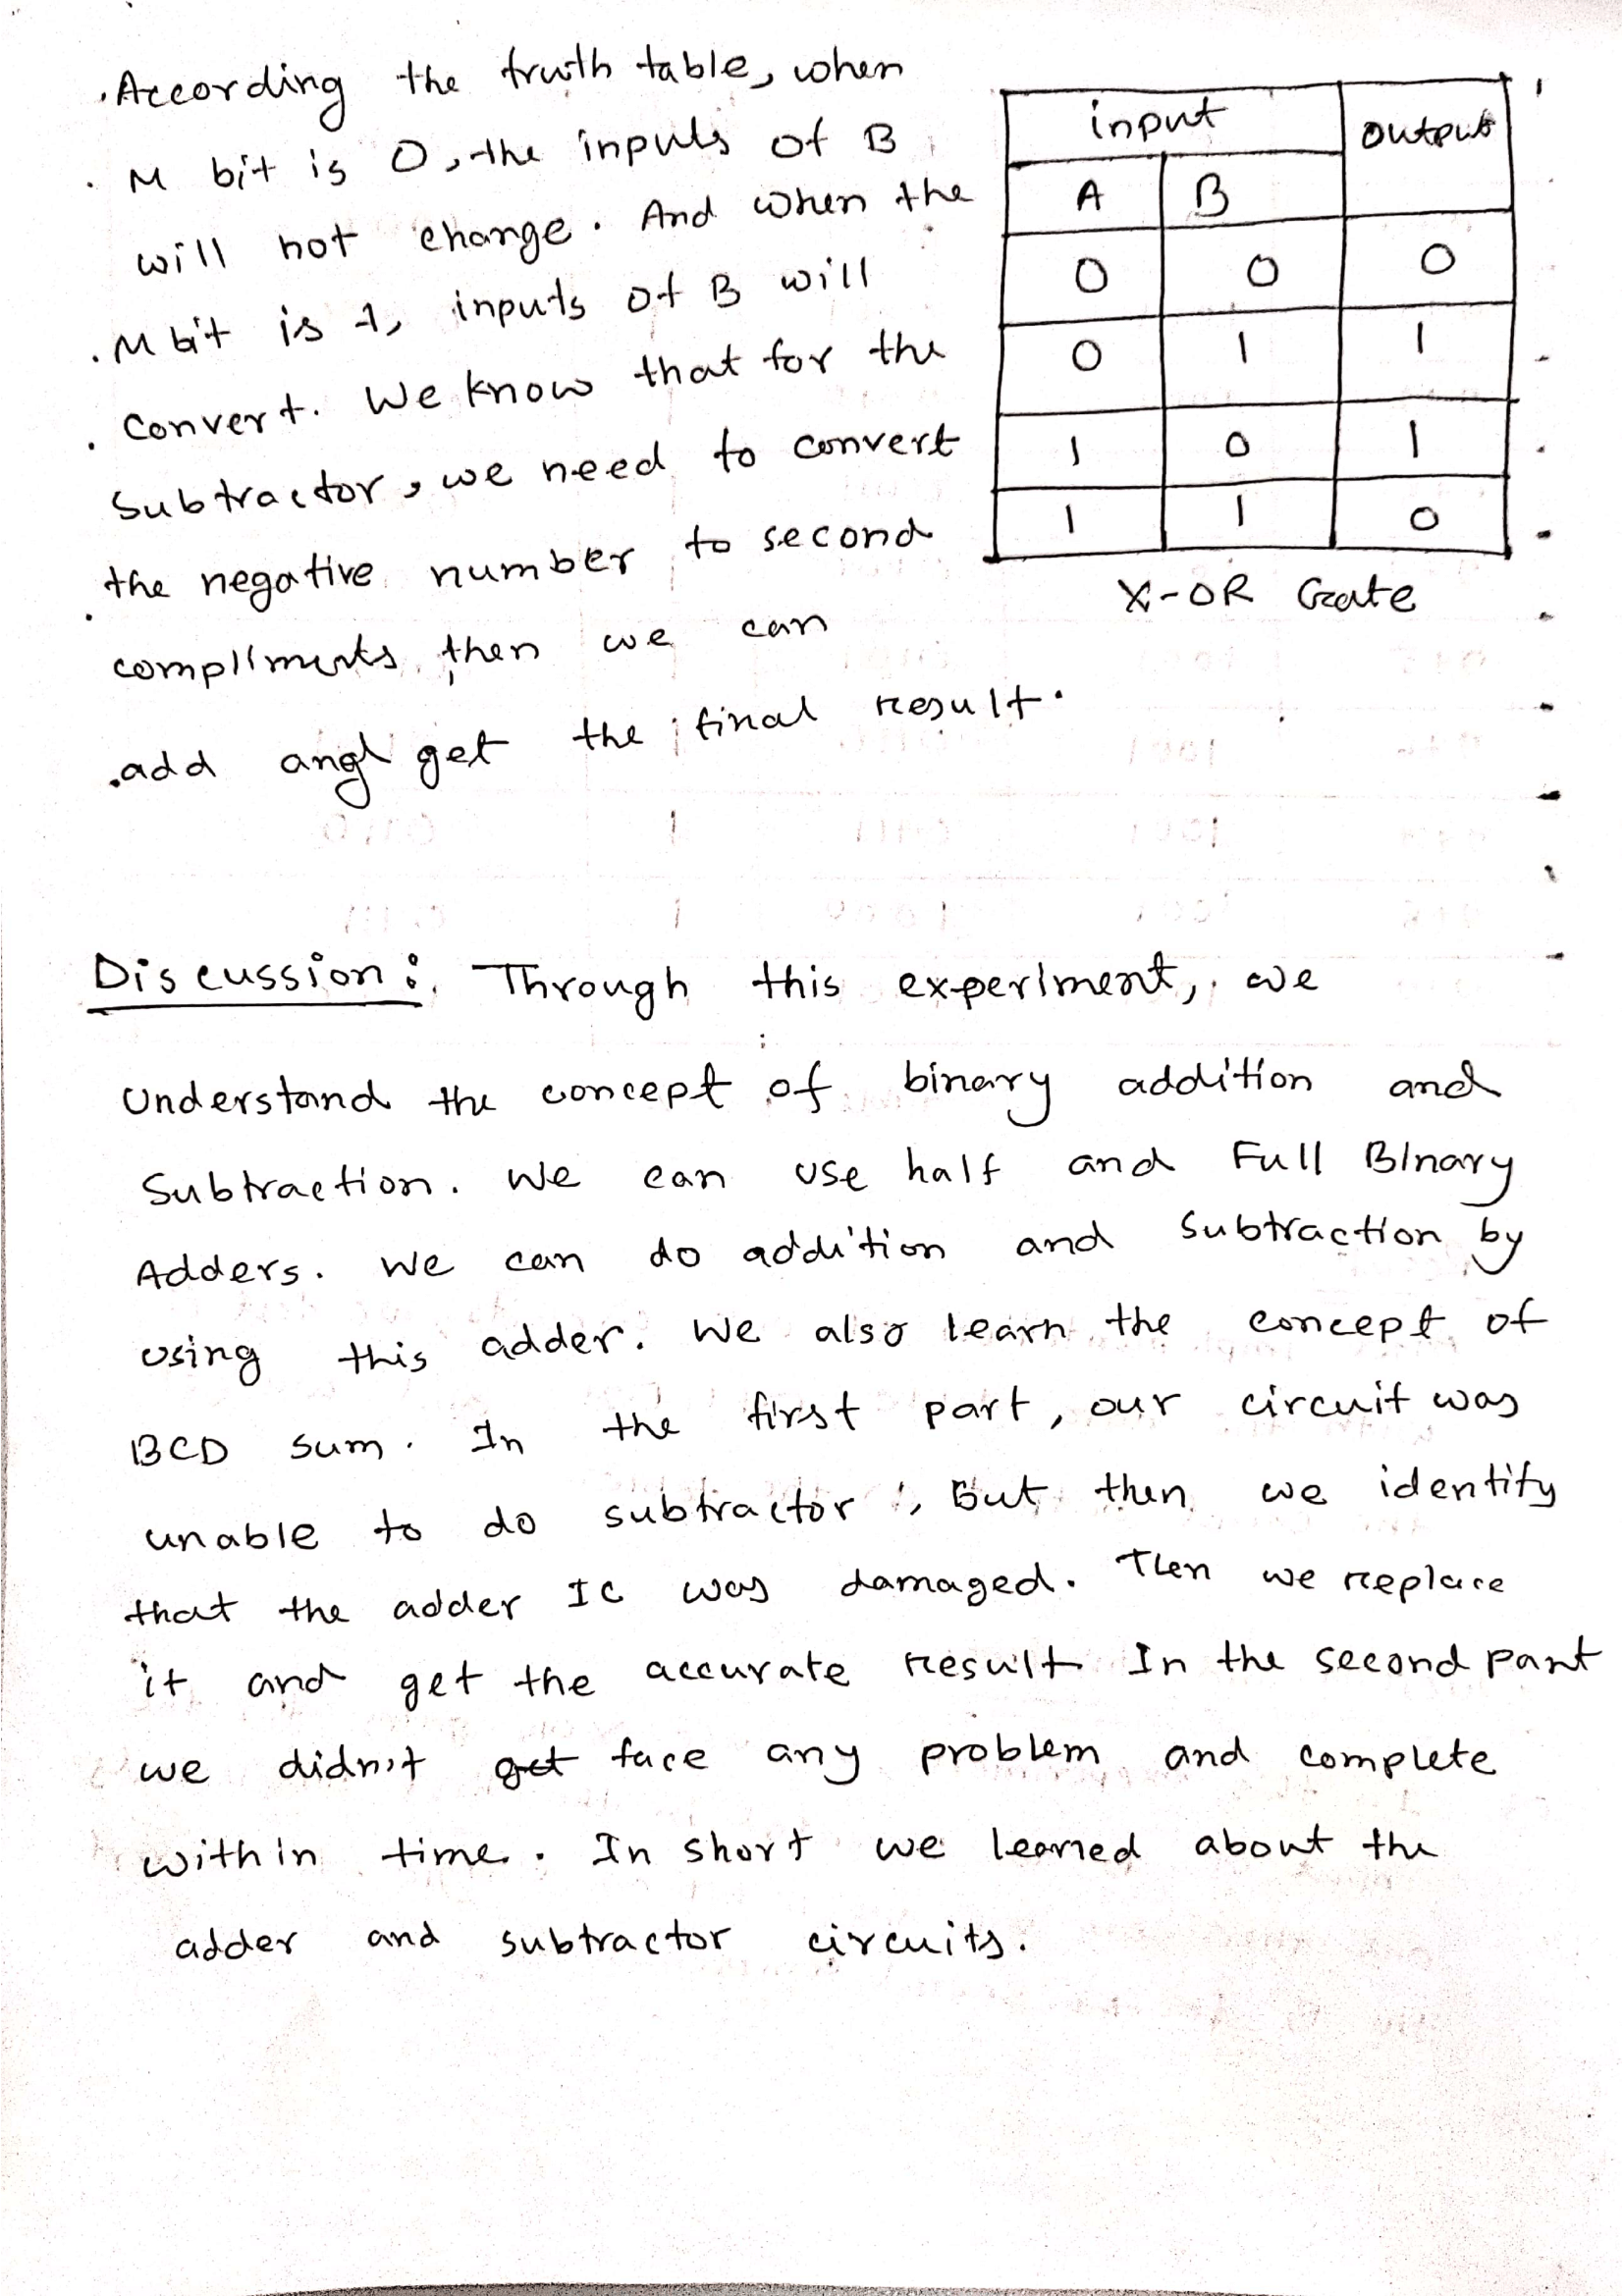 According the truth table, when
M bit is 0, the inputs of B
will not change. And when the
M bit is 1, inputs of B will
Convert. We know that for the
Subtractor, we need to convert
the negative number to second
compliments then we can
add and get the final result.
input output
A B
0 0 0
0 1 1
1 0 1
1 1 0
X-OR Gate
Discussion: Through this experiment, we
Understand the concept of binary addition and
Subtraction. We can use half and Full Binary
Adders. We can do addition and Subtraction by
using this adder. We also learn the concept of
BCD sum. In the first part, our circuit was
unable to do subtractor, But then we identify
that the adder IC was damaged. Then we replace
it and get the accurate result. In the second part
we didn't get face any problem and complete
within time. In short we learned about the
adder and subtractor circuits.